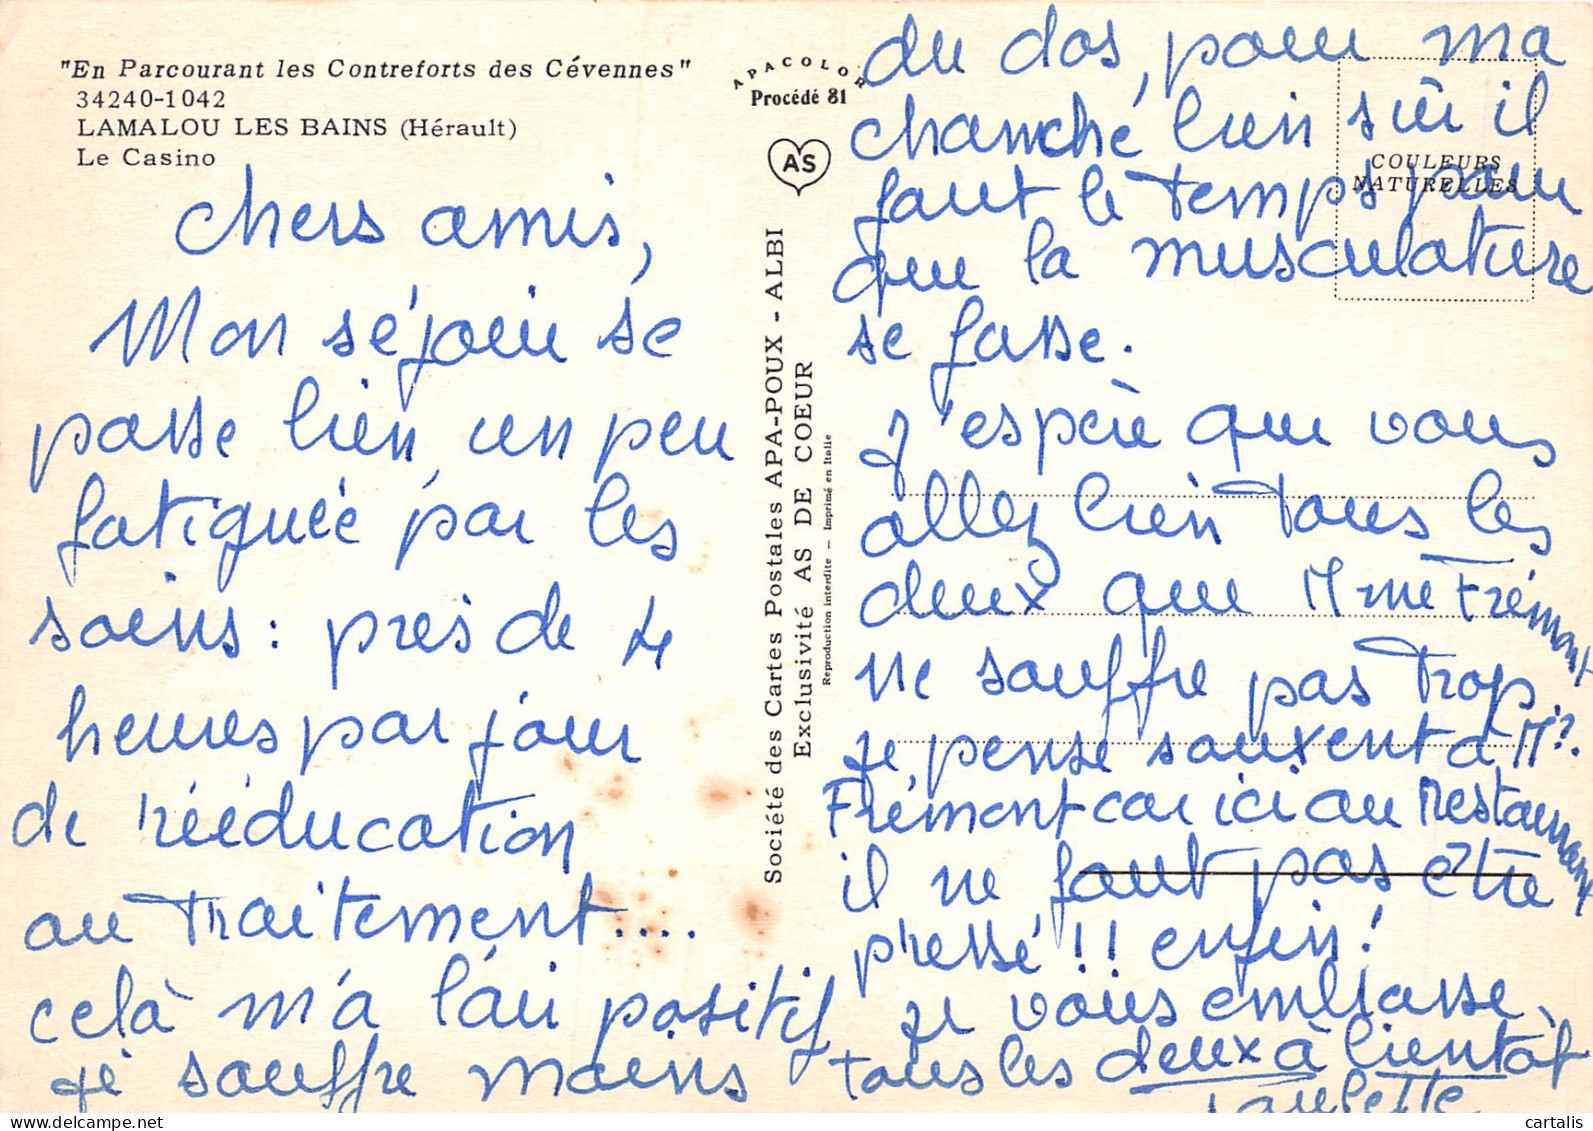 "En Parcourant les Contreforts des Cévennes"
34240-1042
LAMALOU LES BAINS (Hérault)
Le Casino
Chers amis,
Mon séjour se
passe bien, un peu
fatiguée par les
soins : près de 4
heures par jour
de rééducation
au traitement....
celà m'a l'air positif
je souffre moins
APACOLOR
Procédé 81
AS
Société des Cartes Postales APA-POUX - ALBI
Exclusivité AS DE COEUR
Reproduction interdite - Imprimé en Italie
COULEURS
NATURELLES
du dos, pour ma
hanche bien sûr il
faut le temps pour
que la musculature
se fasse.
J'espère que vous
allez bien tous les
deux que Mme Frémont
ne souffre pas trop.
Je pense souvent à Mr.
Frémont car ici au Restaurant
il ne faut pas être
pressé !! enfin !
Je vous embrasse
tous les deux à bientôt
Paulette
cartalis